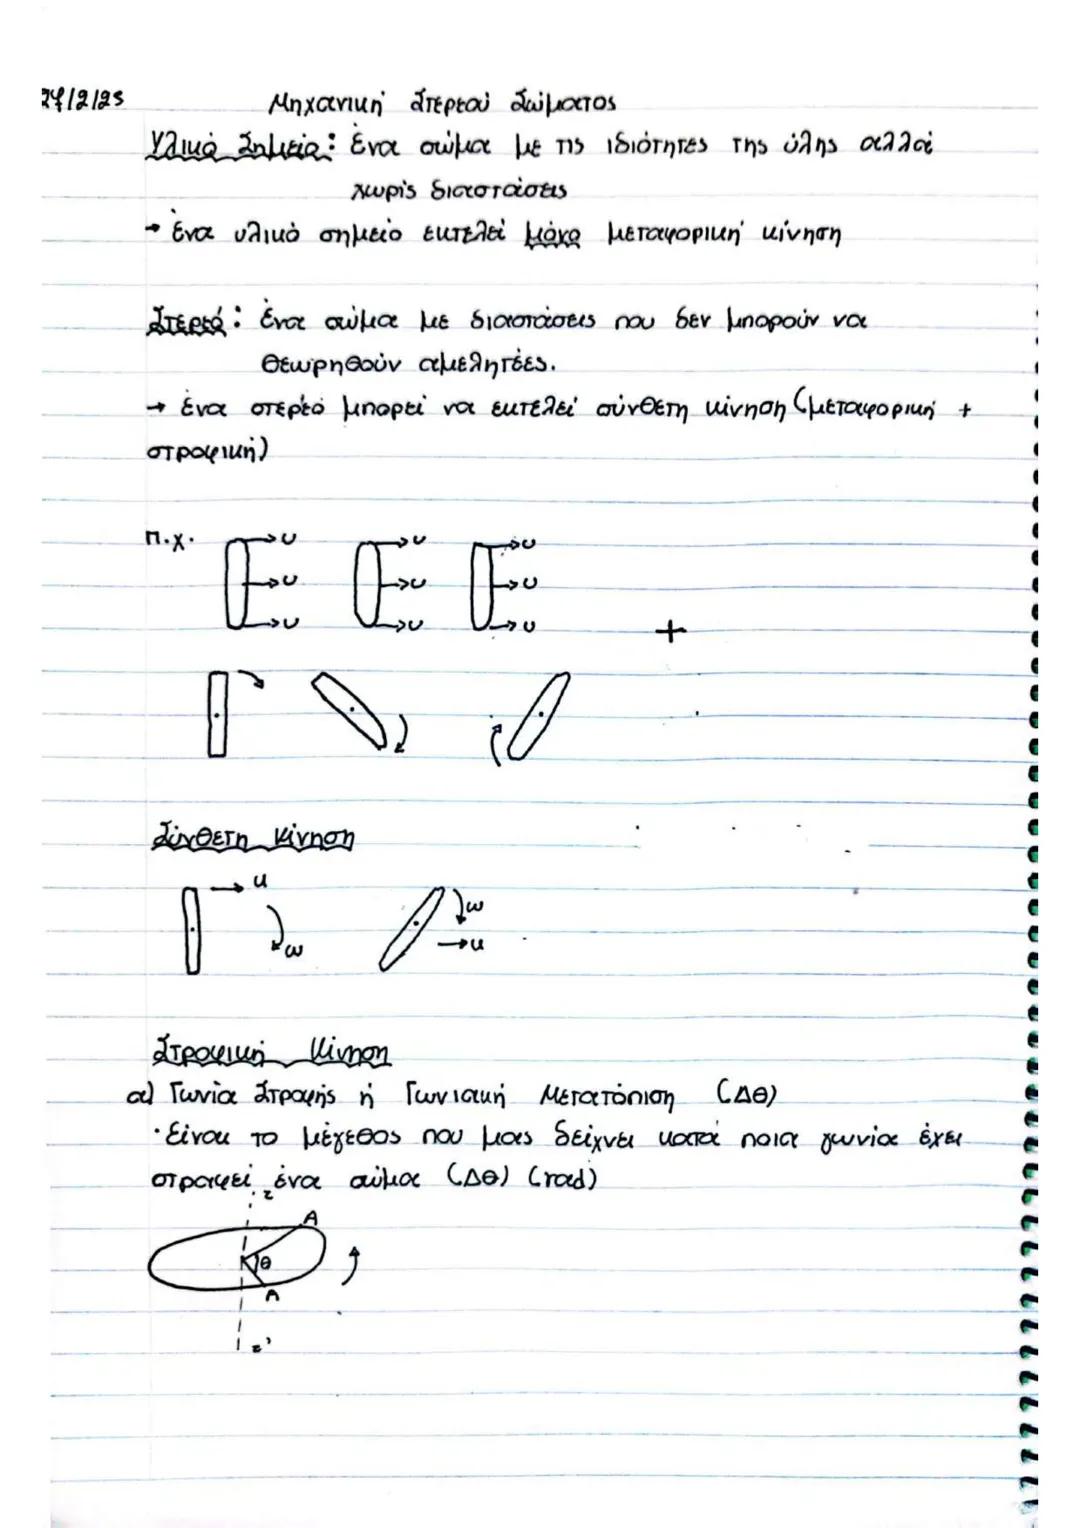 27/2/25
Μηχανική Στερεού Σώματος
Υλικό Σημείο: Ένα σώμα με τις ιδιότητες της ύλης αλλά
χωρίς διαστάσεις
→ Ένα υλικό σημείο εκτελεί μόνο μεταφορική κίνηση
Στερεό: Ένα σώμα με διαστάσεις που δεν μπορούν να
θεωρηθούν αμελητέες.
→ ένα στερεό μπορεί να εκτελεί σύνθετη κίνηση (μεταφορική +
στροφική)
π.χ. υ υ υ
υ υ υ
υ υ υ
+
Σύνθετη Κίνηση
υ ω
ω υ
Στροφική Κίνηση
α) Γωνία Στροφής ή Γωνιακή Μετατόπιση (Δθ)
· Είναι το μέγεθος που μας δείχνει κατά ποια γωνία έχει
στραφεί ένα σώμα (Δθ) (rad)
z
A
θ
A
z'